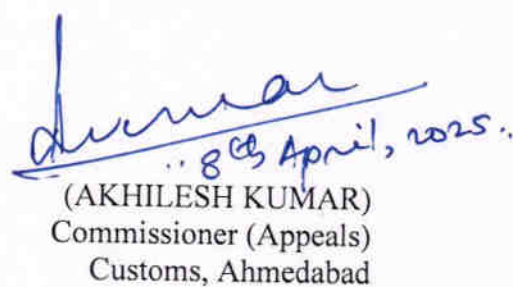 8th April, 2025.
(AKHILESH KUMAR)
Commissioner (Appeals)
Customs, Ahmedabad